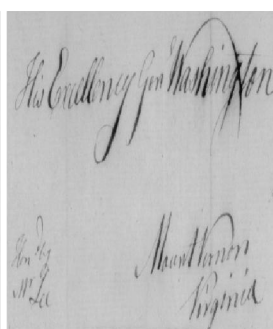 His Excellency Gen Washington
Mount Vernon
Virginia
Hond by
Mr Lee